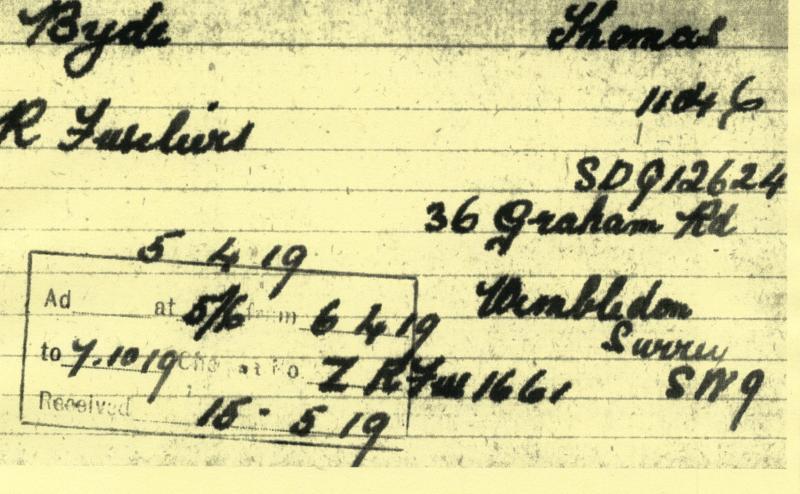 Byde Thomas
11046
R Fusiliers
SDQ12624
36 Graham Rd
5 4 19
Wimbledon
Surrey
SW9
Ad at 5/6 from 6 4 19
to 7.10 19 Z R Fus 1661
Received 15 - 5 19